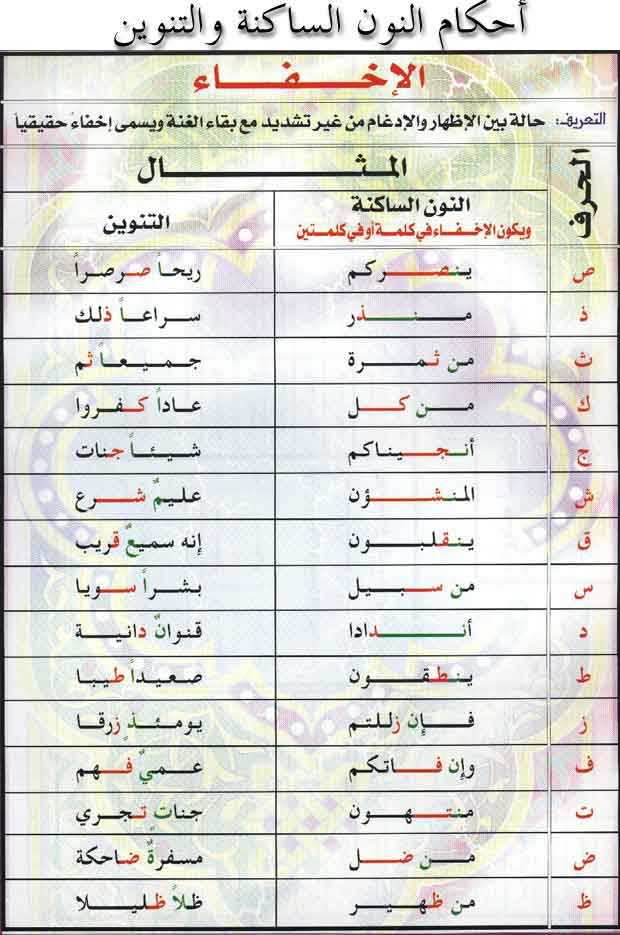 أحكام النون الساكنة والتنوين
الإخفاء
التعريف: حالة بين الإظهار والإدغام من غير تشديد مع بقاء الغنة ويسمى إخفاءً حقيقياً
الحرف المثال
النون الساكنة التنوين
ويكون الإخفاء في كلمة أو في كلمتين
ص ينصركم ريحاً صرصراً
ذ منذر سراعاً ذلك
ث من ثمرة جميعاً ثم
ك من كل عاداً كفروا
ج أنجيناكم شيئاً جنات
ش المنشؤن عليمٌ شرع
ق ينقلبون إنه سميعٌ قريب
س من سبيل بشراً سويا
د أندادا قنوانٌ دانية
ط ينطقون صعيداً طيبا
ز فإن زللتم يومئذٍ زرقا
ف وإن فاتكم عميٌ فهم
ت منتهون جناتٍ تجري
ض من ضل مسفرةٌ ضاحكة
ظ من ظهير ظلاً ظليلا